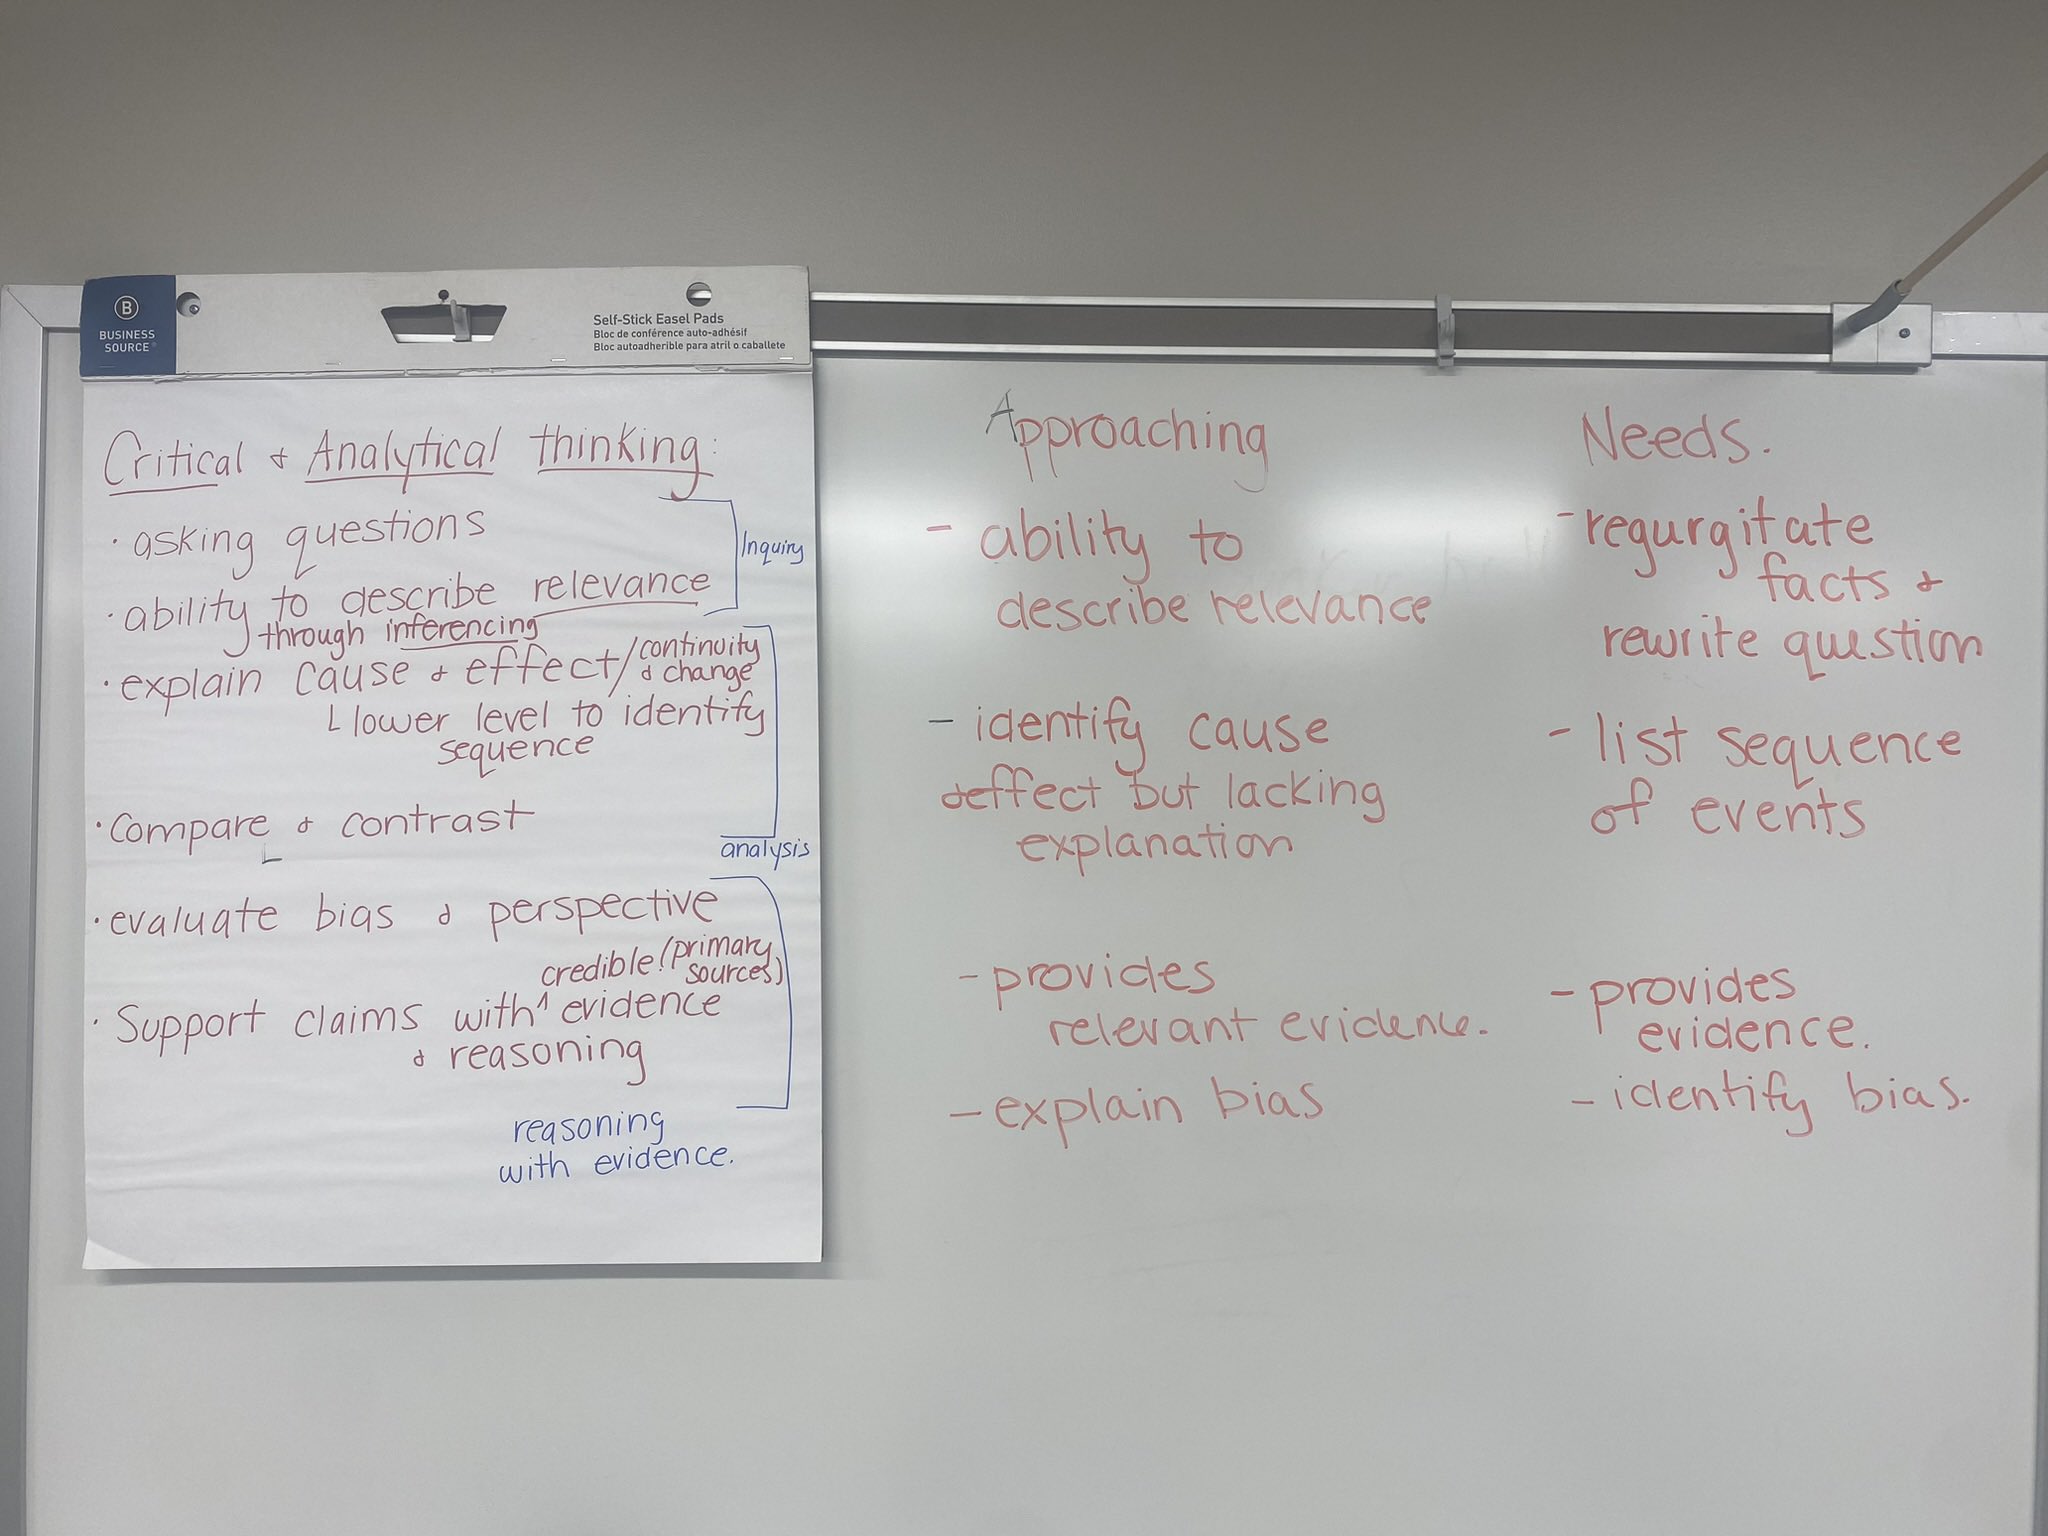 B
BUSINESS
SOURCE
Self-Stick Easel Pads
Bloc de conférence auto-adhésif
Bloc autoadherible para atril o caballete
Critical & Analytical thinking:
· asking questions
Inquiry
· ability to describe relevance
through inferencing
· explain cause & effect/continuity & change
lower level to identify
sequence
· Compare & contrast
analysis
· evaluate bias & perspective
credible! (primary
sources)
· Support claims with ^ evidence
& reasoning
reasoning
with evidence.
Approaching
- ability to
describe relevance
- identify cause
& effect but lacking
explanation
- provides
relevant evidence.
- explain bias
Needs.
- regurgitate
facts &
rewrite question
- list sequence
of events
- provides
evidence.
- identify bias.